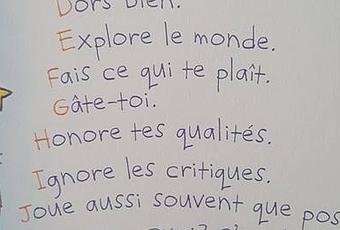 Dors bien.
Explore le monde.
Fais ce qui te plaît.
Gâte-toi.
Honore tes qualités.
Ignore les critiques.
Joue aussi souvent que pos